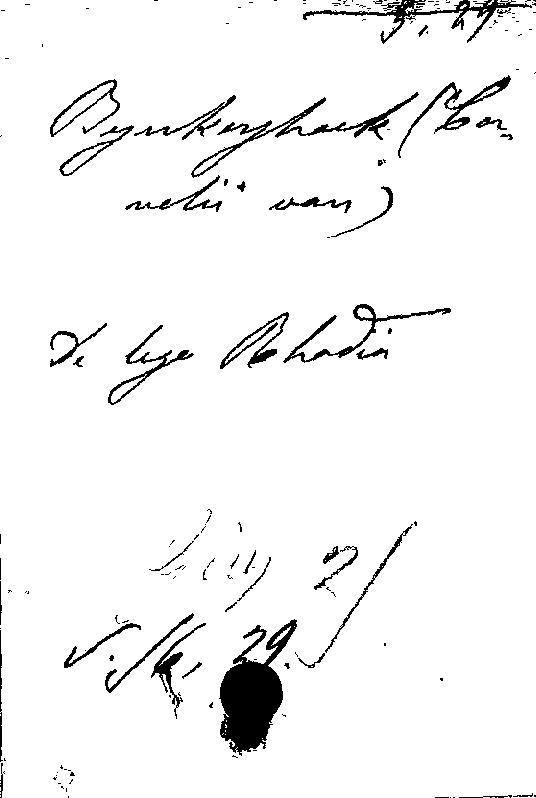 5. 29
Bynkershoek (Cor-
nelii van)
De lege Rhodia
29.